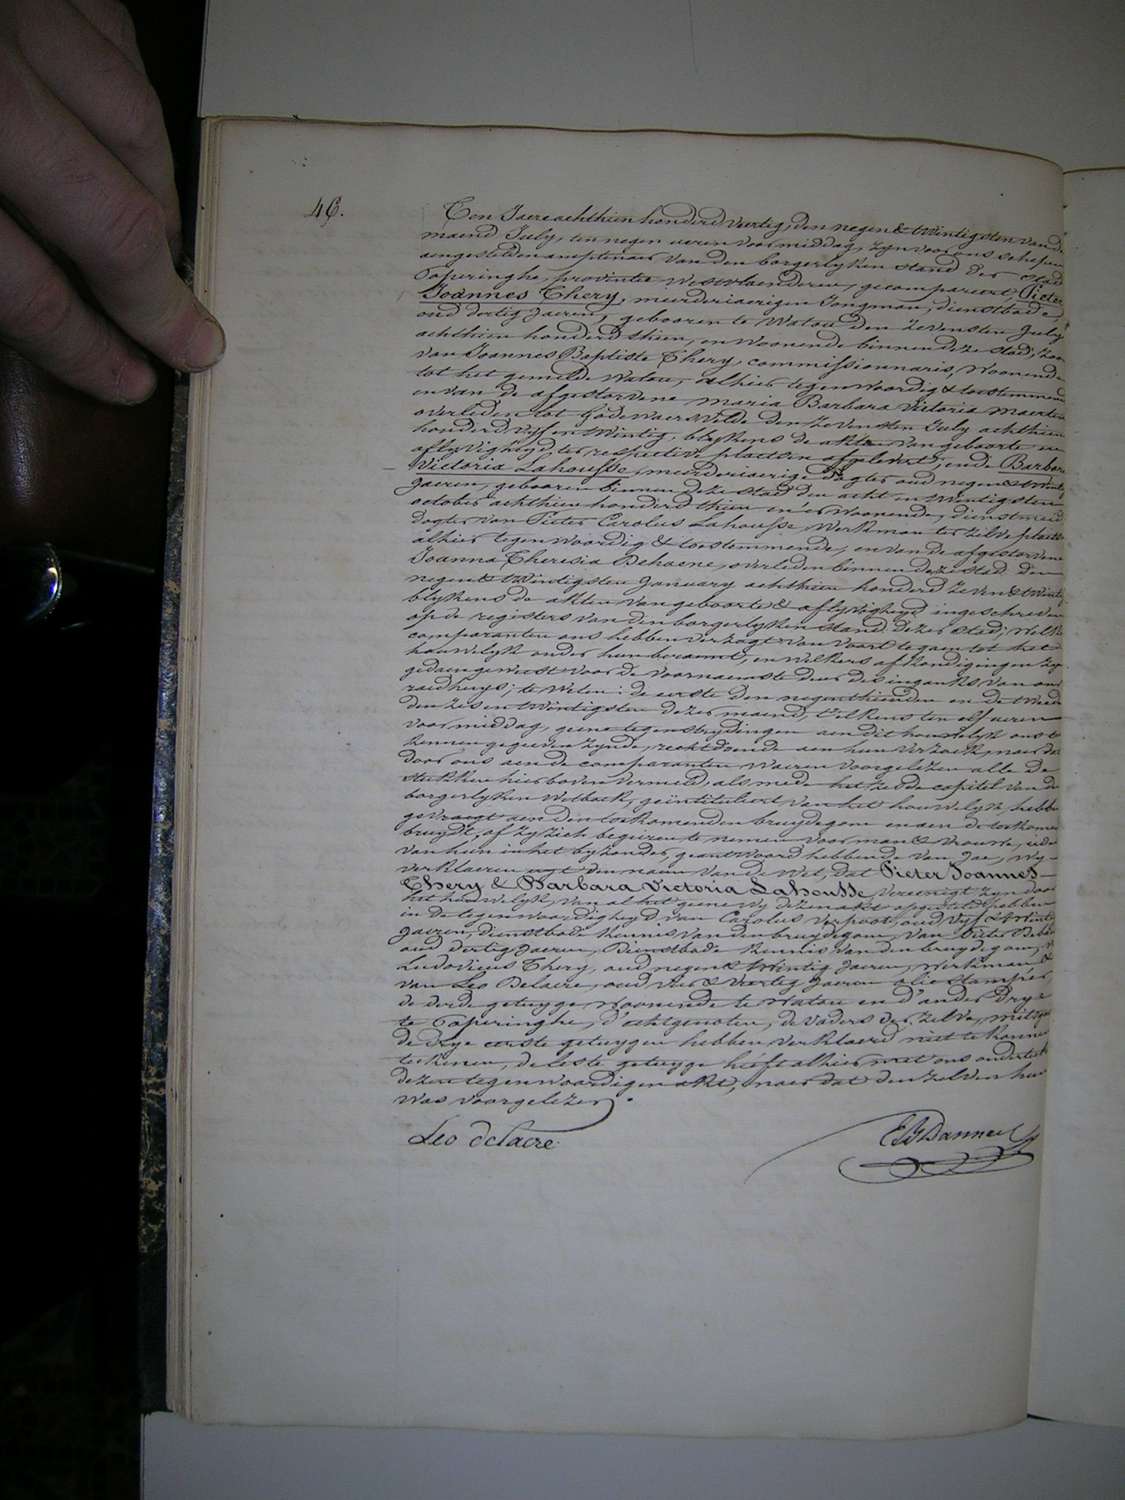 46.
Ten Jaere achthien honderd veertig, den negen & twintigsten van de
maend July, ten negen ueren voormiddag, zyn voor ons schepen
aengestelden amptenaer van den borgerlyken stand der stad
Poperinghe, provintie Westvlaenderen, gecompareert, Pieter
Joannes Thery, meerderjaerigen Jongman, dienstbode,
oud dertig Jaeren, gebooren te Watou den zevensten July
achthien honderd thien, en woonende binnen deze stad, zoon
van Joannes Baptiste Thery, commissionnaris, woonende
tot het gemelde Watou, alhier tegenwoordig & toestemmend
en van de afgestorvene Maria Barbara Victoria
overleden tot Godewaersvelde den zevensten July achthien
honderd vyf en twintig, blykens de akten van geboorte en
aflyvigheyd ter respective plaetsen afgelevert, ende Barbara
Victoria Lahousse, meerderjaerige dogter oud negen & twintig
Jaeren, gebooren binnen deze stad den acht en twintigsten
october achthien honderd thien en er woonende, dienstmeid
dogter van Pieter Carolus Lahousse, werkman ter zelve plaets
alhier tegenwoordig & toestemmende, en van de afgestorvene
Joanna Theresia Dehaene, overleden binnen deze stad den
negen & twintigsten January achthien honderd zeven & twintig
blykens de akten van geboorte & aflyvigheyd ingeschreven
op de registers van den borgerlyken stand dezer stad; welke
comparanten ons hebben verzogt van voort te gaen tot het
houwelyk onder hun beraemt, en welkers afkondigingen zyn
gedaen geweest voor de voornaemste deur des ingangs van ons
raedhuys; te weten: de eerste den negenthienden en de tweede
den zes en twintigsten dezer maend, telkens ten elf ueren
voormiddag, geene tegenstrydingen aen dit houwelyk ons te
kennen gegeeven zynde, rechtdoende aen hun verzoek, naer dat
door ons aen de comparanten waeren voorgelezen alle de
stukken hier boven vermeld, als mede het zesde capitel van den
borgerlyken wetboek, geintituleert van het houwelyk, hebben
gevraegt aen den toekomenden bruydegom en aen de toekomende
bruydt, of zy zich begeiren te nemen voor man & vrouwe, ider
van hun in het byzonder, geantwoord hebbende van Jae, wy
verklaeren uyt den naem van de wet, dat Pieter Joannes
Thery & Barbara Victoria Lahousse vereenigt zyn door
het houwelyk, van al het geene wy dezen akt opgesteld hebben
in de tegenwoordigheyd van Carolus Verpoot, oud vyf & twintig
Jaeren, dienstbode kennis van den bruydegom, van Pieter
oud dertig Jaeren, Dienstbode kennis van den bruydegom,
Ludovicus Thery, oud negen & twintig Jaeren, werkman &
van Leo Delaere, oud vier & veertig Jaeren olie stamper
de derde getuyge woonende te Watou en d'ander dry
te Poperinghe, d'echtgenoten, de vaders der zelve, mitsgaders
de drye eerste getuygen hebben verklaerd niet te konnen
teekenen, de leste getuyge heeft alhier met ons onderteekent
dezen tegenwoordigen akt, naer dat den zelven hun
was voorgelezen.
Leo delaere